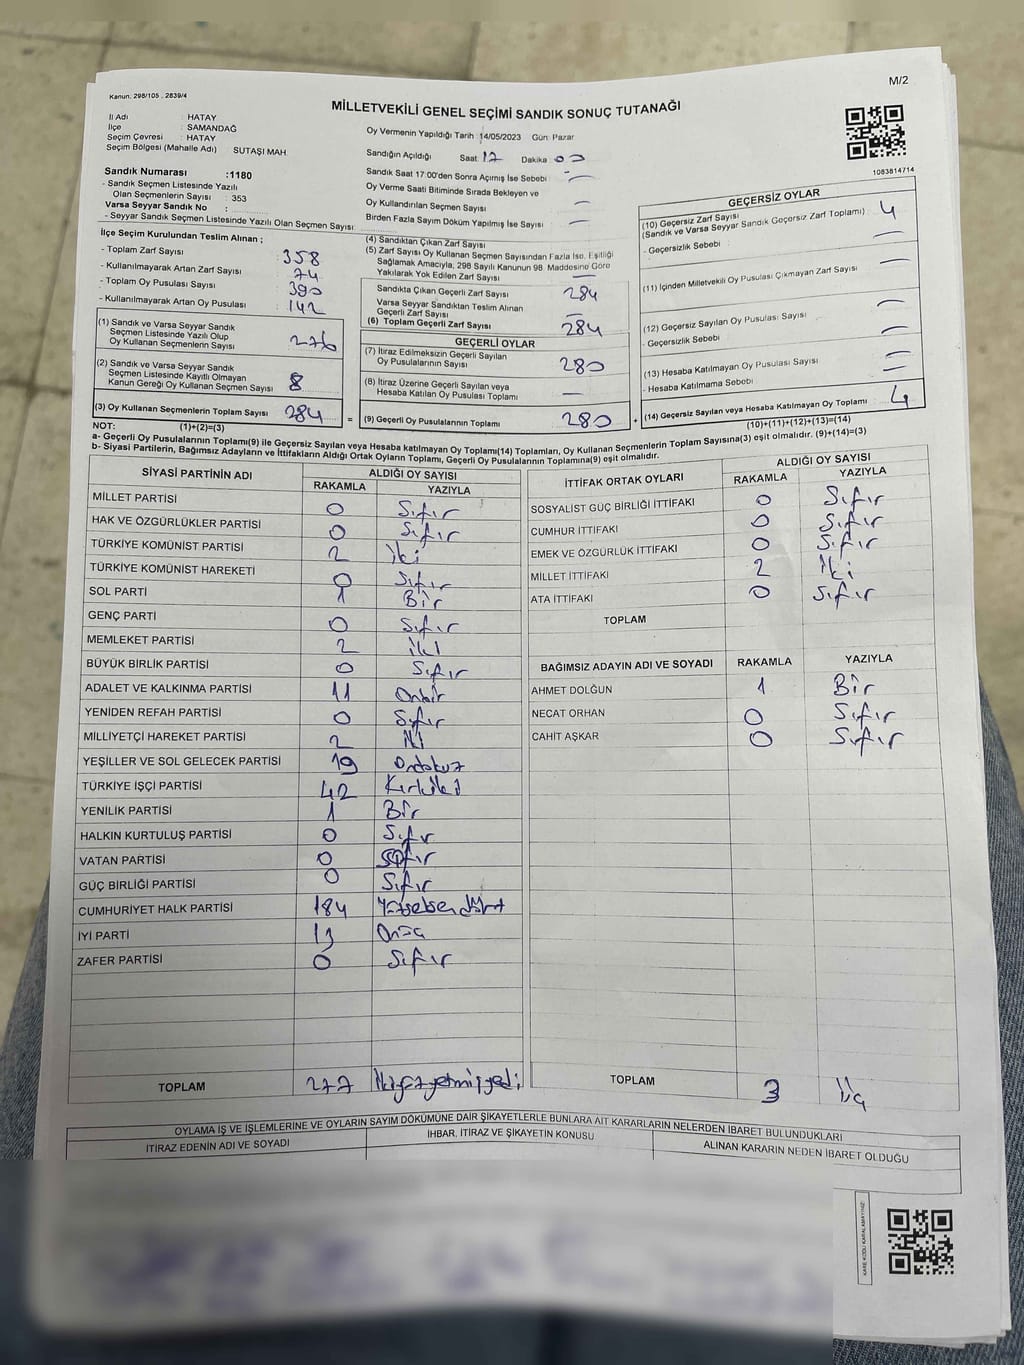 M/2
Kanun: 298/105 , 2839/4
MİLLETVEKİLİ GENEL SEÇİMİ SANDIK SONUÇ TUTANAĞI
İl Adı : HATAY
İlçe : SAMANDAĞ
Seçim Çevresi : HATAY
Seçim Bölgesi (Mahalle Adı) SUTAŞI MAH.
Sandık Numarası :1180
- Sandık Seçmen Listesinde Yazılı
Olan Seçmenlerin Sayısı : 353
Varsa Seyyar Sandık No :
- Seyyar Sandık Seçmen Listesinde Yazılı Olan Seçmen Sayısı :
Oy Vermenin Yapıldığı Tarih : 14/05/2023 Gün: Pazar
Sandığın Açıldığı Saat 17 Dakika 00
Sandık Saat 17:00'den Sonra Açılmış İse Sebebi : —
Oy Verme Saati Bitiminde Sırada Bekleyen ve
Oy Kullandırılan Seçmen Sayısı : —
Birden Fazla Sayım Döküm Yapılmış İse Sayısı : —
1083814714
İlçe Seçim Kurulundan Teslim Alınan ;
- Toplam Zarf Sayısı : 358
- Kullanılmayarak Artan Zarf Sayısı : 74
- Toplam Oy Pusulası Sayısı : 390
- Kullanılmayarak Artan Oy Pusulası : 142
(1) Sandık ve Varsa Seyyar Sandık
Seçmen Listesinde Yazılı Olup
Oy Kullanan Seçmenlerin Sayısı 276
(2) Sandık ve Varsa Seyyar Sandık
Seçmen Listesinde Kayıtlı Olmayan
Kanun Gereği Oy Kullanan Seçmen Sayısı 8
(3) Oy Kullanan Seçmenlerin Toplam Sayısı 284 =
(1)+(2)=(3)
(4) Sandıktan Çıkan Zarf Sayısı
(5) Zarf Sayısı Oy Kullanan Seçmen Sayısından Fazla İse, Eşitliği
Sağlamak Amacıyla, 298 Sayılı Kanunun 98. Maddesine Göre
Yakılarak Yok Edilen Zarf Sayısı —
Sandıkta Çıkan Geçerli Zarf Sayısı 284
Varsa Seyyar Sandıktan Teslim Alınan
Geçerli Zarf Sayısı —
(6) Toplam Geçerli Zarf Sayısı 284
GEÇERLİ OYLAR
(7) İtiraz Edilmeksizin Geçerli Sayılan
Oy Pusulalarının Sayısı 280
(8) İtiraz Üzerine Geçerli Sayılan veya
Hesaba Katılan Oy Pusulası Toplamı —
(9) Geçerli Oy Pusulalarının Toplamı 280 +
GEÇERSİZ OYLAR
(10) Geçersiz Zarf Sayısı
(Sandık ve Varsa Seyyar Sandık Geçersiz Zarf Toplamı) 4
- Geçersizlik Sebebi : —
(11) İçinden Milletvekili Oy Pusulası Çıkmayan Zarf Sayısı —
(12) Geçersiz Sayılan Oy Pusulası Sayısı —
- Geçersizlik Sebebi : —
(13) Hesaba Katılmayan Oy Pusulası Sayısı —
- Hesaba Katılmama Sebebi —
(14) Geçersiz Sayılan veya Hesaba Katılmayan Oy Toplamı 4
(10)+(11)+(12)+(13)=(14)
NOT:
a- Geçerli Oy Pusulalarının Toplamı(9) ile Geçersiz Sayılan veya Hesaba katılmayan Oy Toplamı(14) Toplamları, Oy Kullanan Seçmenlerin Toplam Sayısına(3) eşit olmalıdır. (9)+(14)=(3)
b- Siyasi Partilerin, Bağımsız Adayların ve İttifakların Aldığı Ortak Oyların Toplamı, Geçerli Oy Pusulalarının Toplamına(9) eşit olmalıdır.
SİYASİ PARTİNİN ADI ALDIĞI OY SAYISI
RAKAMLA YAZIYLA
MİLLET PARTİSİ 0 Sıfır
HAK VE ÖZGÜRLÜKLER PARTİSİ 0 Sıfır
TÜRKİYE KOMÜNİST PARTİSİ 2 İki
TÜRKİYE KOMÜNİST HAREKETİ 0 Sıfır
SOL PARTİ 1 Bir
GENÇ PARTİ 0 Sıfır
MEMLEKET PARTİSİ 2 İki
BÜYÜK BİRLİK PARTİSİ 0 Sıfır
ADALET VE KALKINMA PARTİSİ 11 Onbir
YENİDEN REFAH PARTİSİ 0 Sıfır
MİLLİYETÇİ HAREKET PARTİSİ 2 İki
YEŞİLLER VE SOL GELECEK PARTİSİ 19 Ondokuz
TÜRKİYE İŞÇİ PARTİSİ 42 Kırkiki
YENİLİK PARTİSİ 1 Bir
HALKIN KURTULUŞ PARTİSİ 0 Sıfır
VATAN PARTİSİ 0 Sıfır
GÜÇ BİRLİĞİ PARTİSİ 0 Sıfır
CUMHURİYET HALK PARTİSİ 184 Yüzseksendört
İYİ PARTİ 13 Onüç
ZAFER PARTİSİ 0 Sıfır
TOPLAM 277 İkiyüzyetmişyedi
İTTİFAK ORTAK OYLARI ALDIĞI OY SAYISI
RAKAMLA YAZIYLA
SOSYALİST GÜÇ BİRLİĞİ İTTİFAKI 0 Sıfır
CUMHUR İTTİFAKI 0 Sıfır
EMEK VE ÖZGÜRLÜK İTTİFAKI 0 Sıfır
MİLLET İTTİFAKI 2 İki
ATA İTTİFAKI 0 Sıfır
TOPLAM
BAĞIMSIZ ADAYIN ADI VE SOYADI RAKAMLA YAZIYLA
AHMET DOLĞUN 1 Bir
NECAT ORHAN 0 Sıfır
CAHİT AŞKAR 0 Sıfır
TOPLAM 3 üç
OYLAMA İŞ VE İŞLEMLERİNE VE OYLARIN SAYIM DÖKÜMÜNE DAİR ŞİKAYETLERLE BUNLARA AİT KARARLARIN NELERDEN İBARET BULUNDUKLARI
İTİRAZ EDENİN ADI VE SOYADI İHBAR, İTİRAZ VE ŞİKAYETİN KONUSU ALINAN KARARIN NEDEN İBARET OLDUĞU
KARE KODU KARALAMAYINIZ!